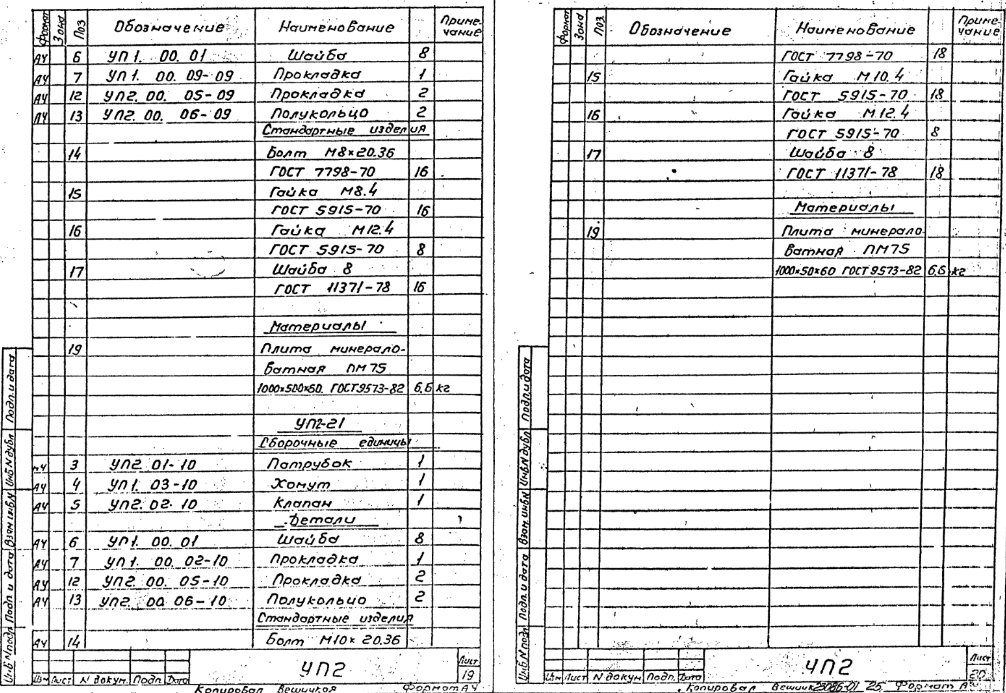 Формат Зона Поз Обозначение Наименование Приме-чание
А4 6 УП1. 00. 01 Шайба 8
А4 7 УП1. 00. 09-09 Прокладка 1
А4 12 УП2. 00. 05-09 Прокладка 2
А4 13 УП2. 00. 06-09 Полукольцо 2
Стандартные изделия
14 Болт М8×20.36
ГОСТ 7798-70 16
15 Гайка М8.4
ГОСТ 5915-70 16
16 Гайка М12.4
ГОСТ 5915-70 8
17 Шайба 8
ГОСТ 11371-78 16
Материалы
19 Плита минерало-
ватная ПМ75
1000×500×60 ГОСТ9573-82 6,6 кг
УП2-21
Сборочные единицы
А4 3 УП2. 01-10 Патрубок 1
А4 4 УП1. 03-10 Хомут 1
А4 5 УП2. 02. 10 Клапан 1
Детали
А4 6 УП1. 00. 01 Шайба 8
А4 7 УП1. 00. 02-10 Прокладка 1
А4 12 УП2. 00. 05-10 Прокладка 2
А4 13 УП2. 00. 06-10 Полукольцо 2
Стандартные изделия
А4 14 Болт М10×20.36
УП2
Лист
19
Изм Лист N докум. Подп. Дата
Копировал Формат А4
Инв.N подл Подп. и дата Взам инв.N Инв.N дубл Подп. и дата
Формат Зона Поз Обозначение Наименование Приме-чание
ГОСТ 7798-70 18
15 Гайка М10.4
ГОСТ 5915-70 18
16 Гайка М12.4
ГОСТ 5915-70 8
17 Шайба 8
ГОСТ 11371-78 18
Материалы
19 Плита минерало-
ватная ПМ75
1000×50×60 ГОСТ9573-82 6,6 кг
УП2
Лист
20
Изм Лист N докум Подп. Дата
Копировал 25 Формат
Инв.N подл Подп. и дата Взам инв.N Инв.N дубл Подп. и дата